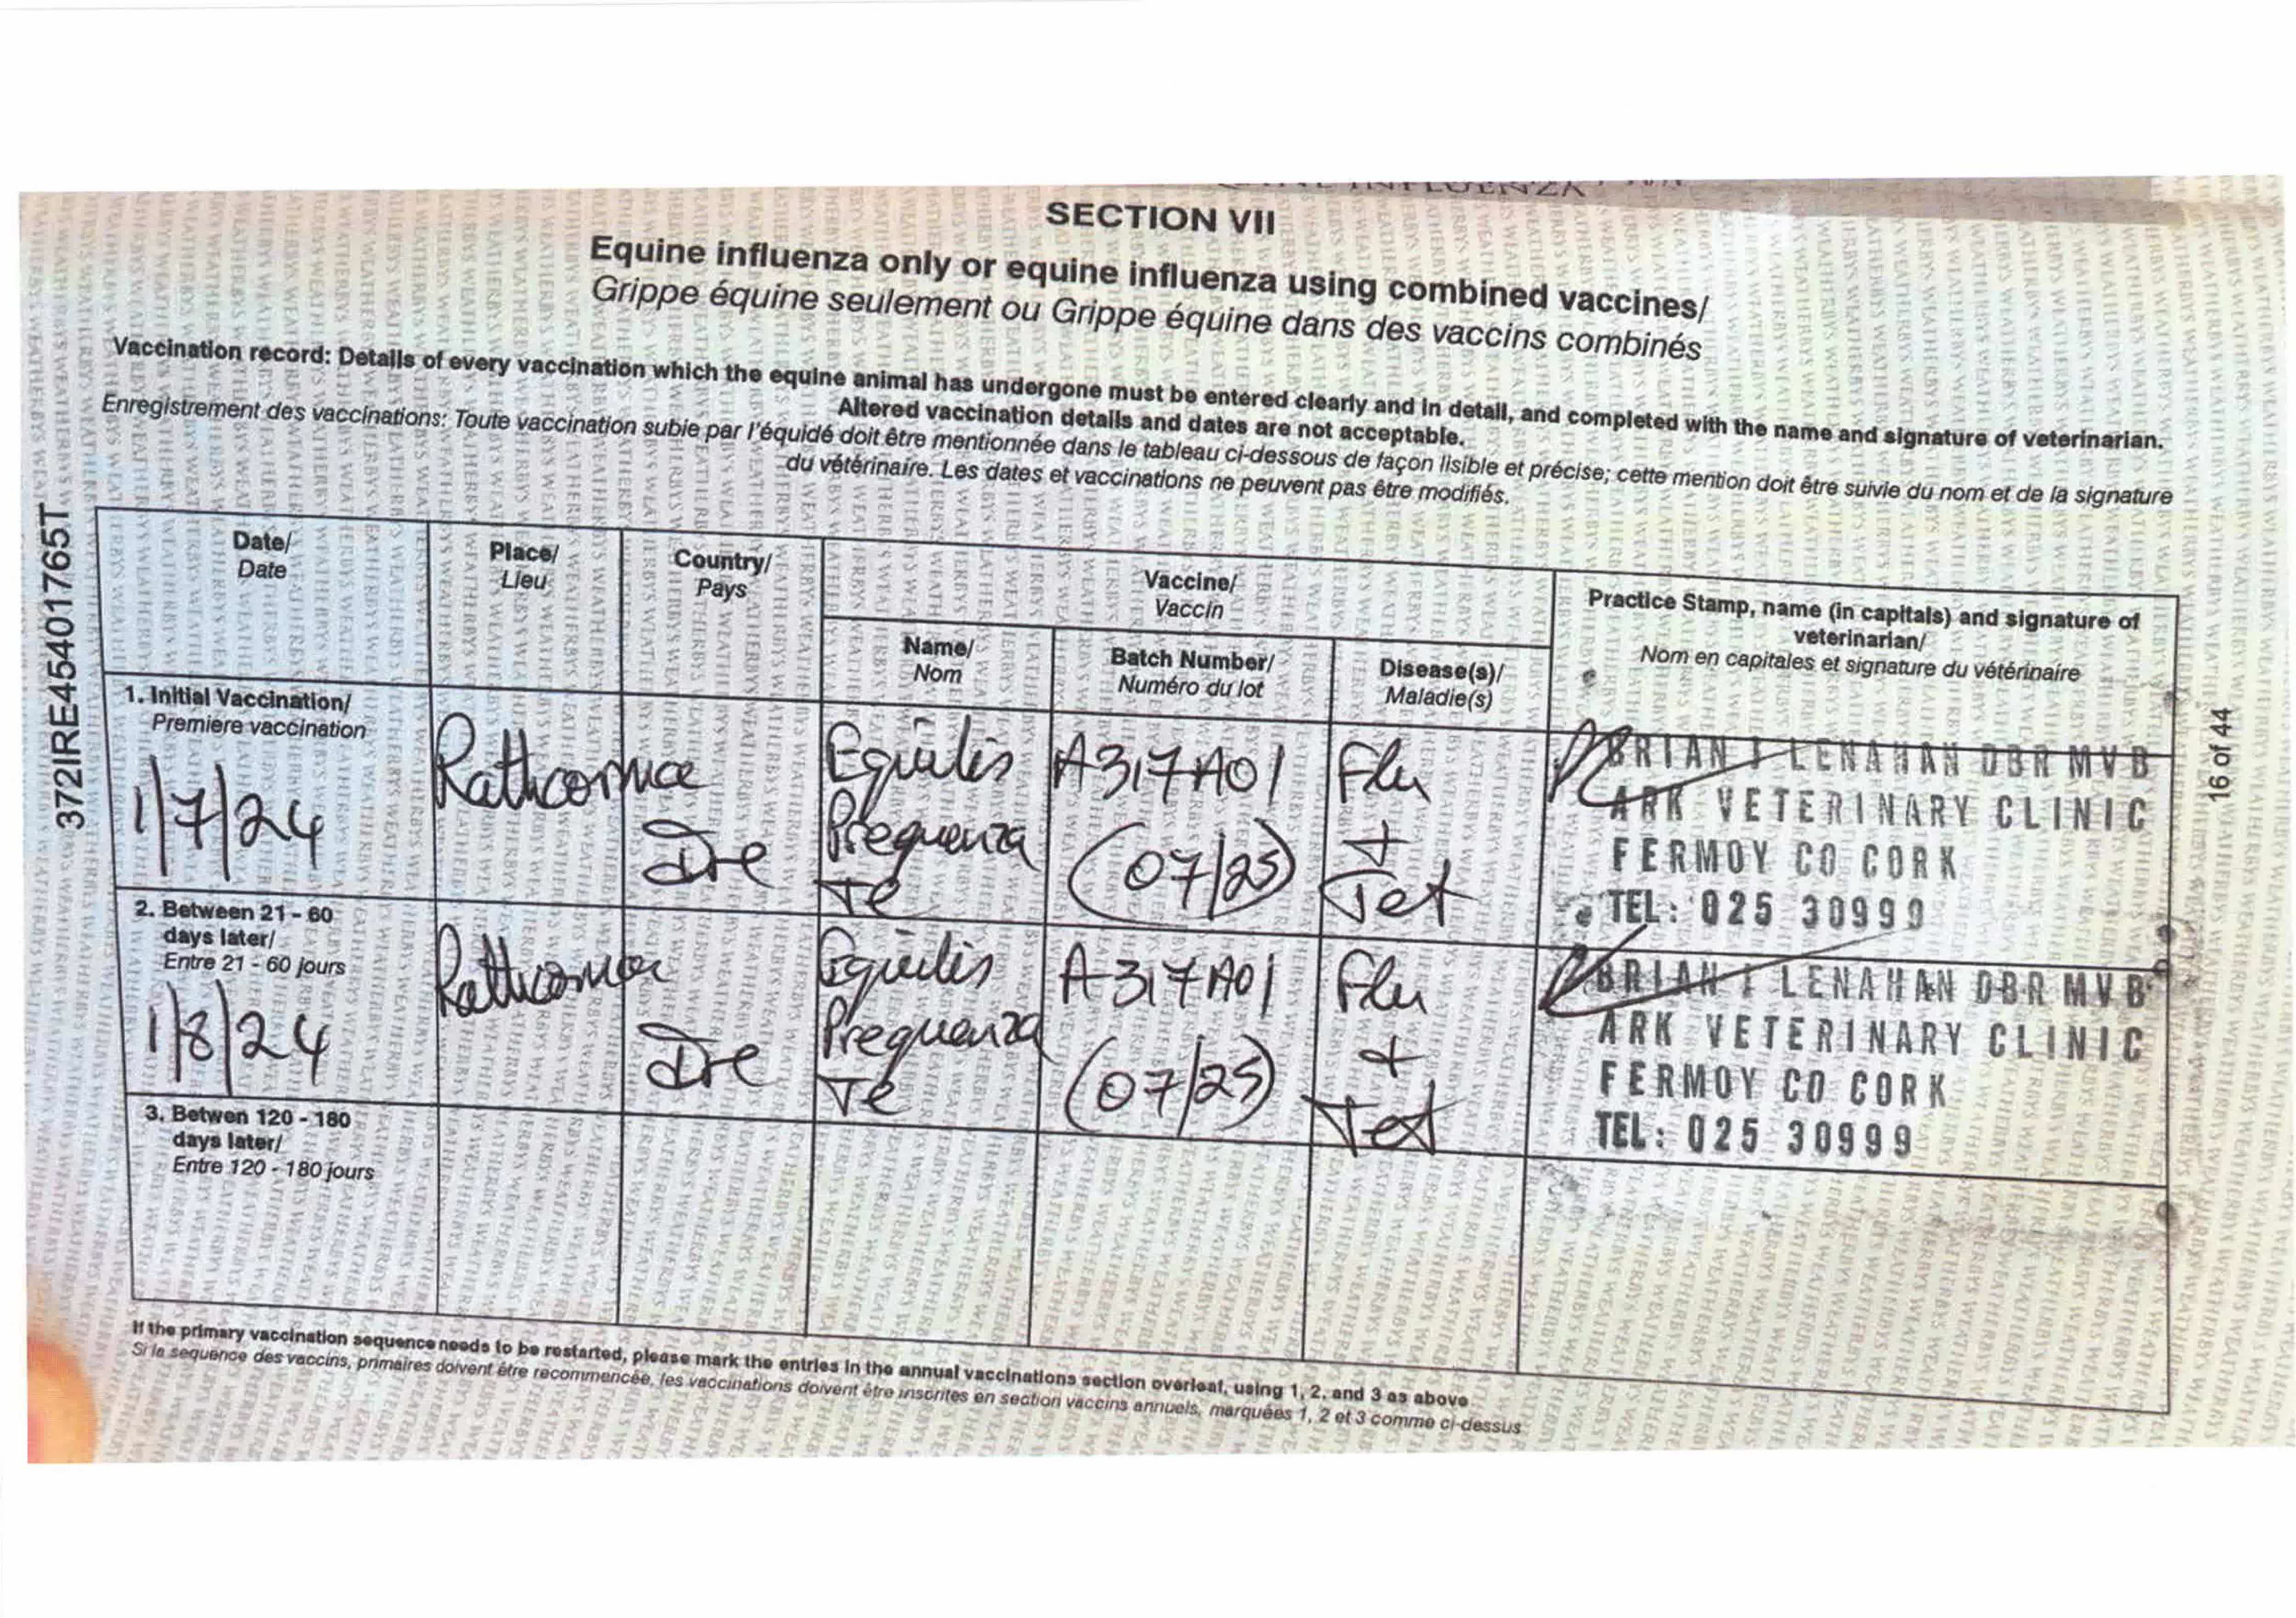 SECTION VII
Equine influenza only or equine influenza using combined vaccines/
Grippe équine seulement ou Grippe équine dans des vaccins combinés
Vaccination record: Details of every vaccination which the equine animal has undergone must be entered clearly and in detail, and completed with the name and signature of veterinarian.
Altered vaccination details and dates are not acceptable.
Enregistrement des vaccinations: Toute vaccination subie par l'équidé doit être mentionnée dans le tableau ci-dessous de façon lisible et précise; cette mention doit être suivie du nom et de la signature
du vétérinaire. Les dates et vaccinations ne peuvent pas être modifiés.
372IRE45401765T
16 of 44
Date/
Date
Place/
Lieu
Country/
Pays
Vaccine/
Vaccin
Name/
Nom
Batch Number/
Numéro du lot
Disease(s)/
Maladie(s)
Practice Stamp, name (in capitals) and signature of
veterinarian/
Nom en capitales et signature du vétérinaire
1. Initial Vaccination/
Premiere vaccination
1/7/24
Rathcormac
Ire
Equilis
Prequenza
Te
A317A01
(07/25)
Flu
+
Tet
BRIAN J LENAHAN DBR MVB
ARK VETERINARY CLINIC
FERMOY CO CORK
TEL: 025 30999
2. Between 21 - 60
days later/
Entre 21 - 60 jours
1/8/24
Rathcormac
Ire
Equilis
Prequenza
Te
A317A01
(07/25)
Flu
+
Tet
BRIAN J LENAHAN DBR MVB
ARK VETERINARY CLINIC
FERMOY CO CORK
TEL: 025 30999
3. Betwen 120 - 180
days later/
Entre 120 - 180 jours
If the primary vaccination sequence needs to be restarted, please mark the entries in the annual vaccinations section overleaf, using 1, 2, and 3 as above
Si la sequence des vaccins, primaires doivent être recommencée, les vaccinations doivent être inscrites en section vaccins annuels, marquées 1, 2 et 3 comme ci-dessus